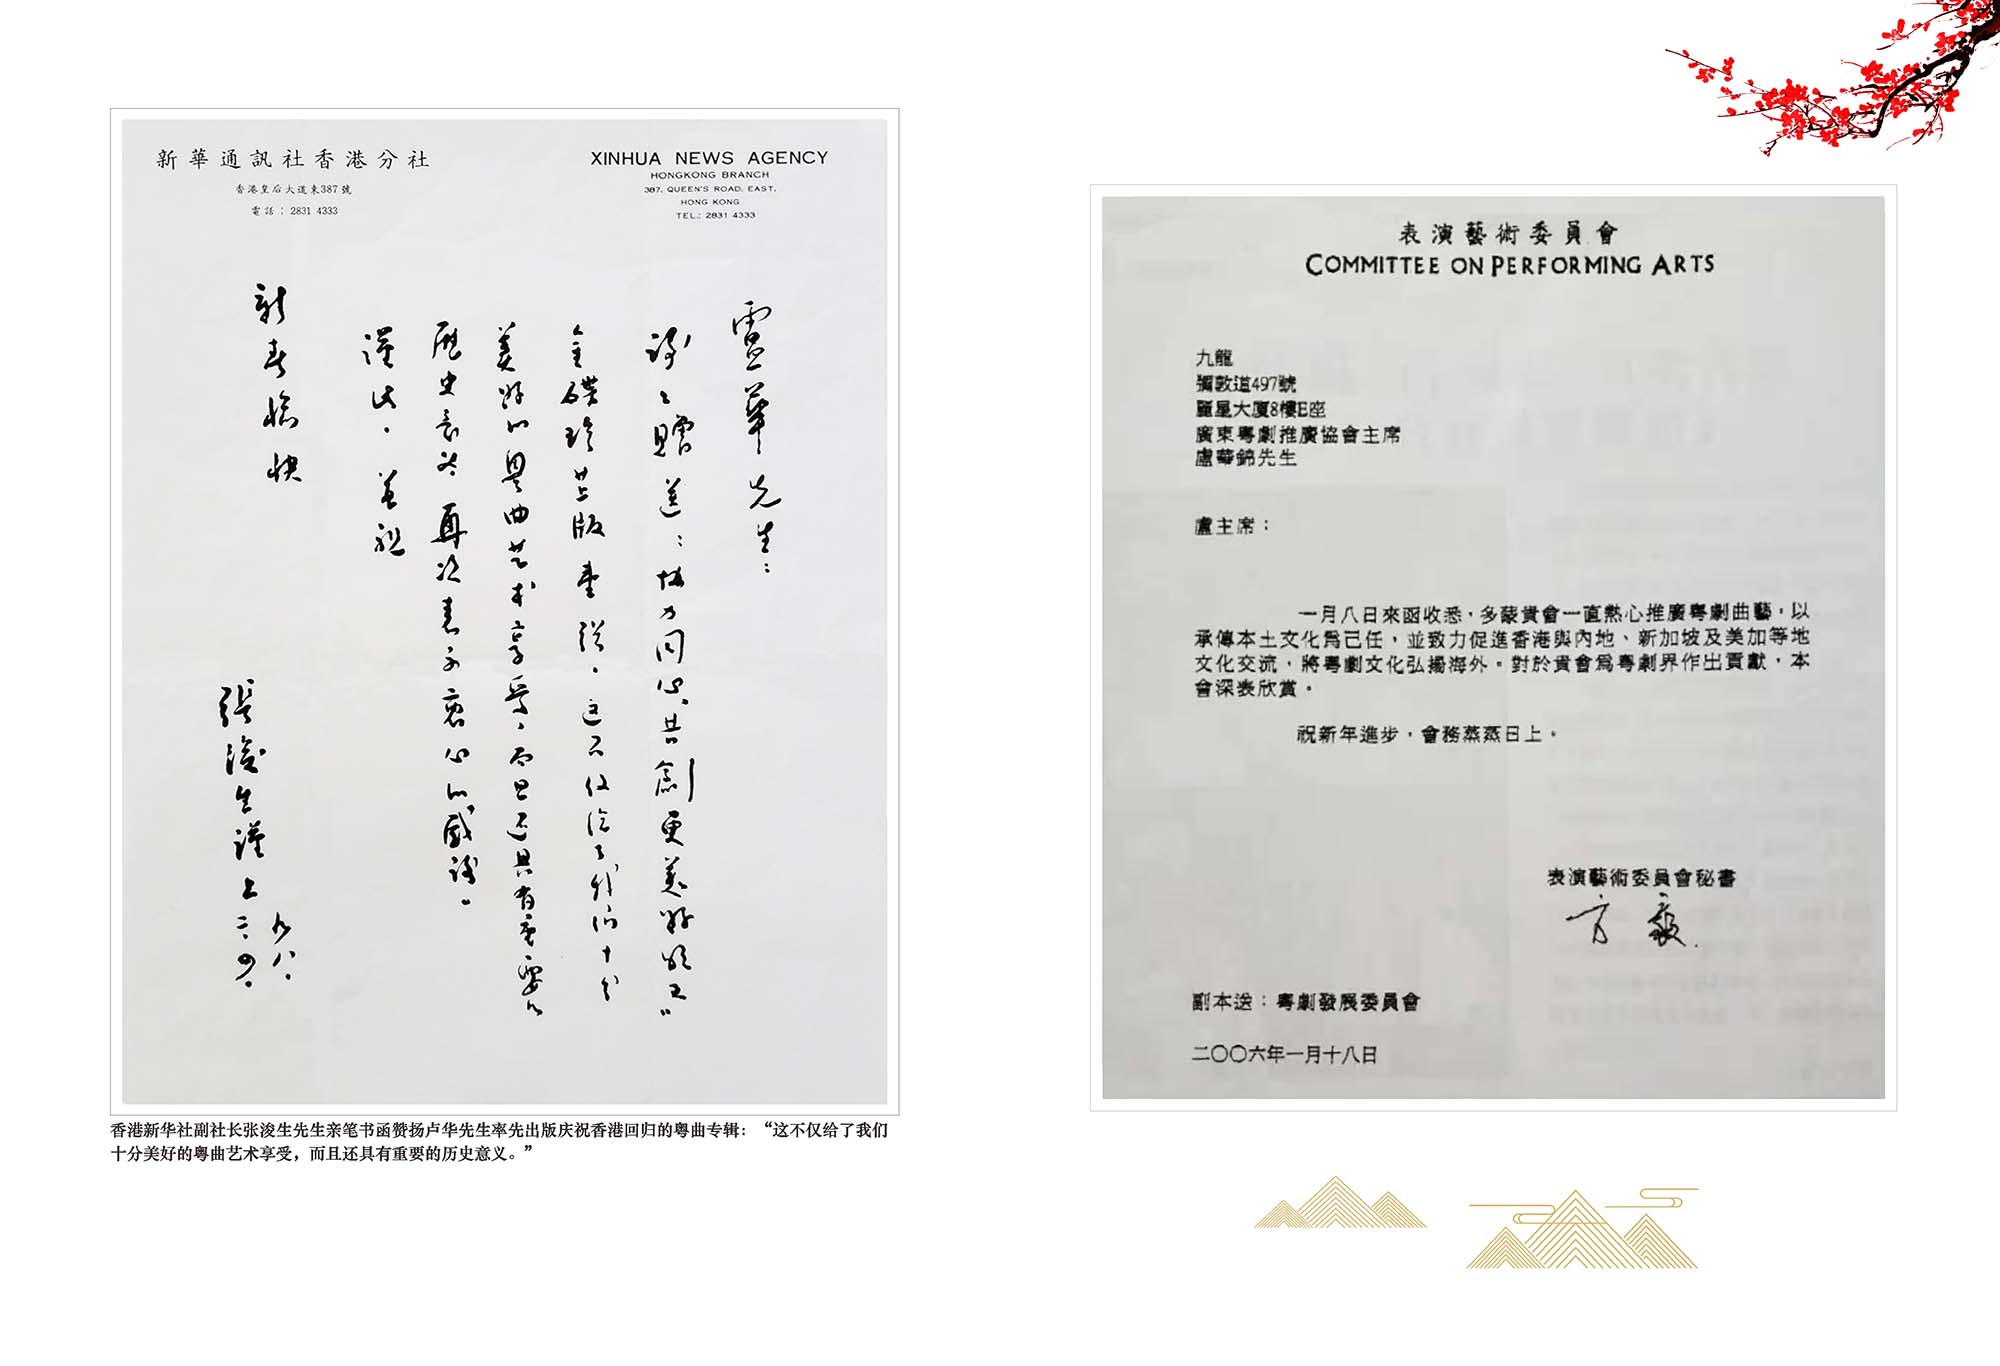 新華通訊社香港分社
香港皇后大道東387號
電話：2831 4333
XINHUA NEWS AGENCY
HONGKONG BRANCH
387, QUEEN'S ROAD, EAST,
HONG KONG
TEL.: 2831 4333
盧華先生：
谢谢贈送：协力同心、共創更美好
金碟珍芷版壹張。这不仅给了我们十分
美好的粤曲艺术享受，而且还具有重要的
歷史意义。再次表示衷心的感谢。
谨此，并祝
新春愉快
張浚生謹上
九八.
香港新华社副社长张浚生先生亲笔书函赞扬卢华先生率先出版庆祝香港回归的粤曲专辑：“这不仅给了我们
十分美好的粤曲艺术享受，而且还具有重要的历史意义。”
表演藝術委員會
COMMITTEE ON PERFORMING ARTS
九龍
彌敦道497號
麗星大廈8樓E座
廣東粵劇推廣協會主席
盧華錦先生
盧主席：
一月八日來函收悉，多蒙貴會一直熱心推廣粵劇曲藝，以
承傳本土文化為己任，並致力促進香港與內地、新加坡及美加等地
文化交流，將粵劇文化弘揚海外。對於貴會為粵劇界作出貢獻，本
會深表欣賞。
祝新年進步，會務蒸蒸日上。
表演藝術委員會秘書
方毅
副本送：粵劇發展委員會
二〇〇六年一月十八日